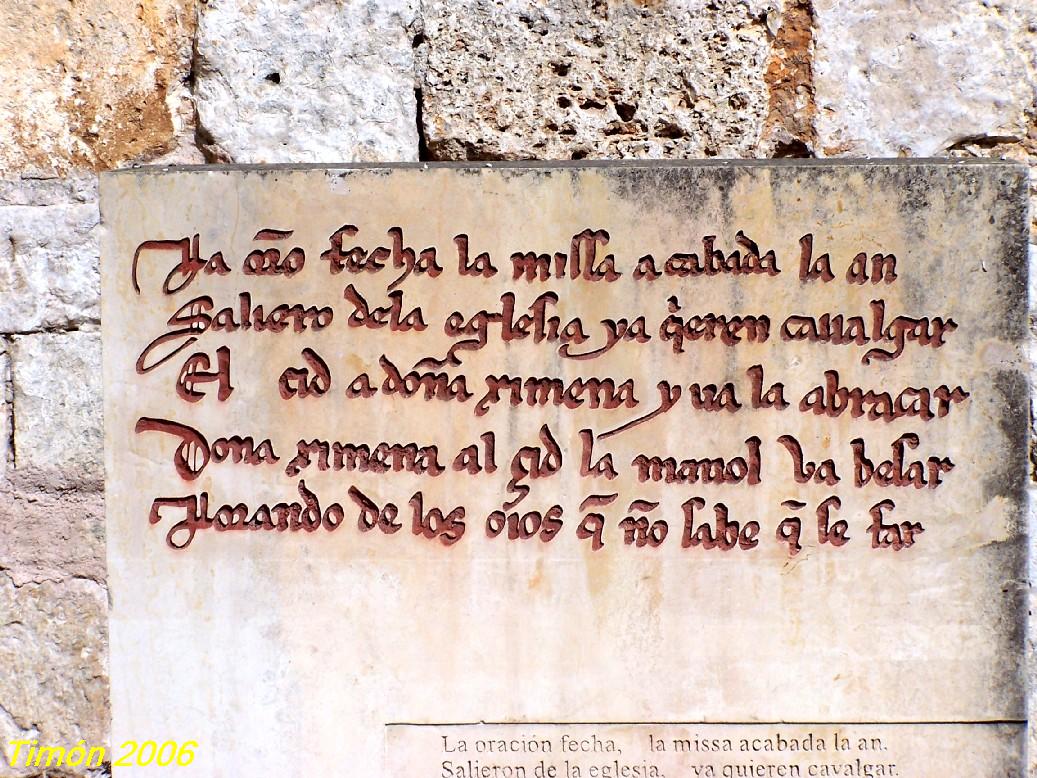 La orõ fecha la missa acabada la an
Saliero dela eglesia ya q̇eren caualgar
El cid a doña ximena yua la abracar
Dona ximena al çid la manol va besar
Lorando de los oios q̃ ño sabe q̃ se far
La oración fecha, la missa acabada la an.
Salieron de la eglesia, ya quieren cavalgar.
Timón 2006